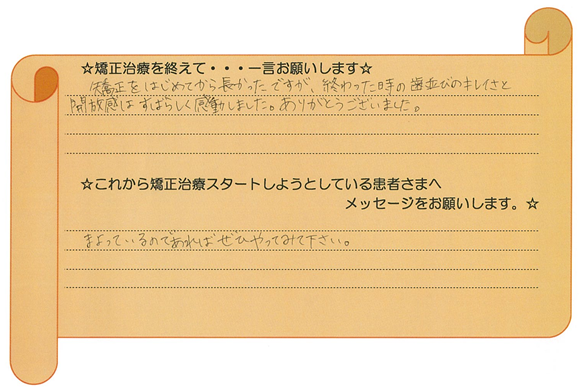 ☆矯正治療を終えて・・・一言お願いします☆
矯正をはじめてから長かったですが、終わった時の歯並びのキレイさと
開放感はすばらしく感動しました。ありがとうございました。
☆これから矯正治療スタートしようとしている患者さまへ
メッセージをお願いします。☆
まよっているのであればぜひやってみて下さい。